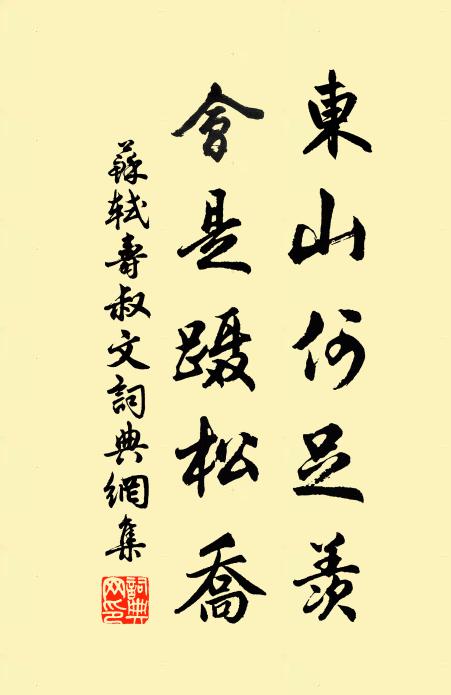 東山何足羨
會是蹑松喬
蘇軾壽叔文詞典網集
詞典网印